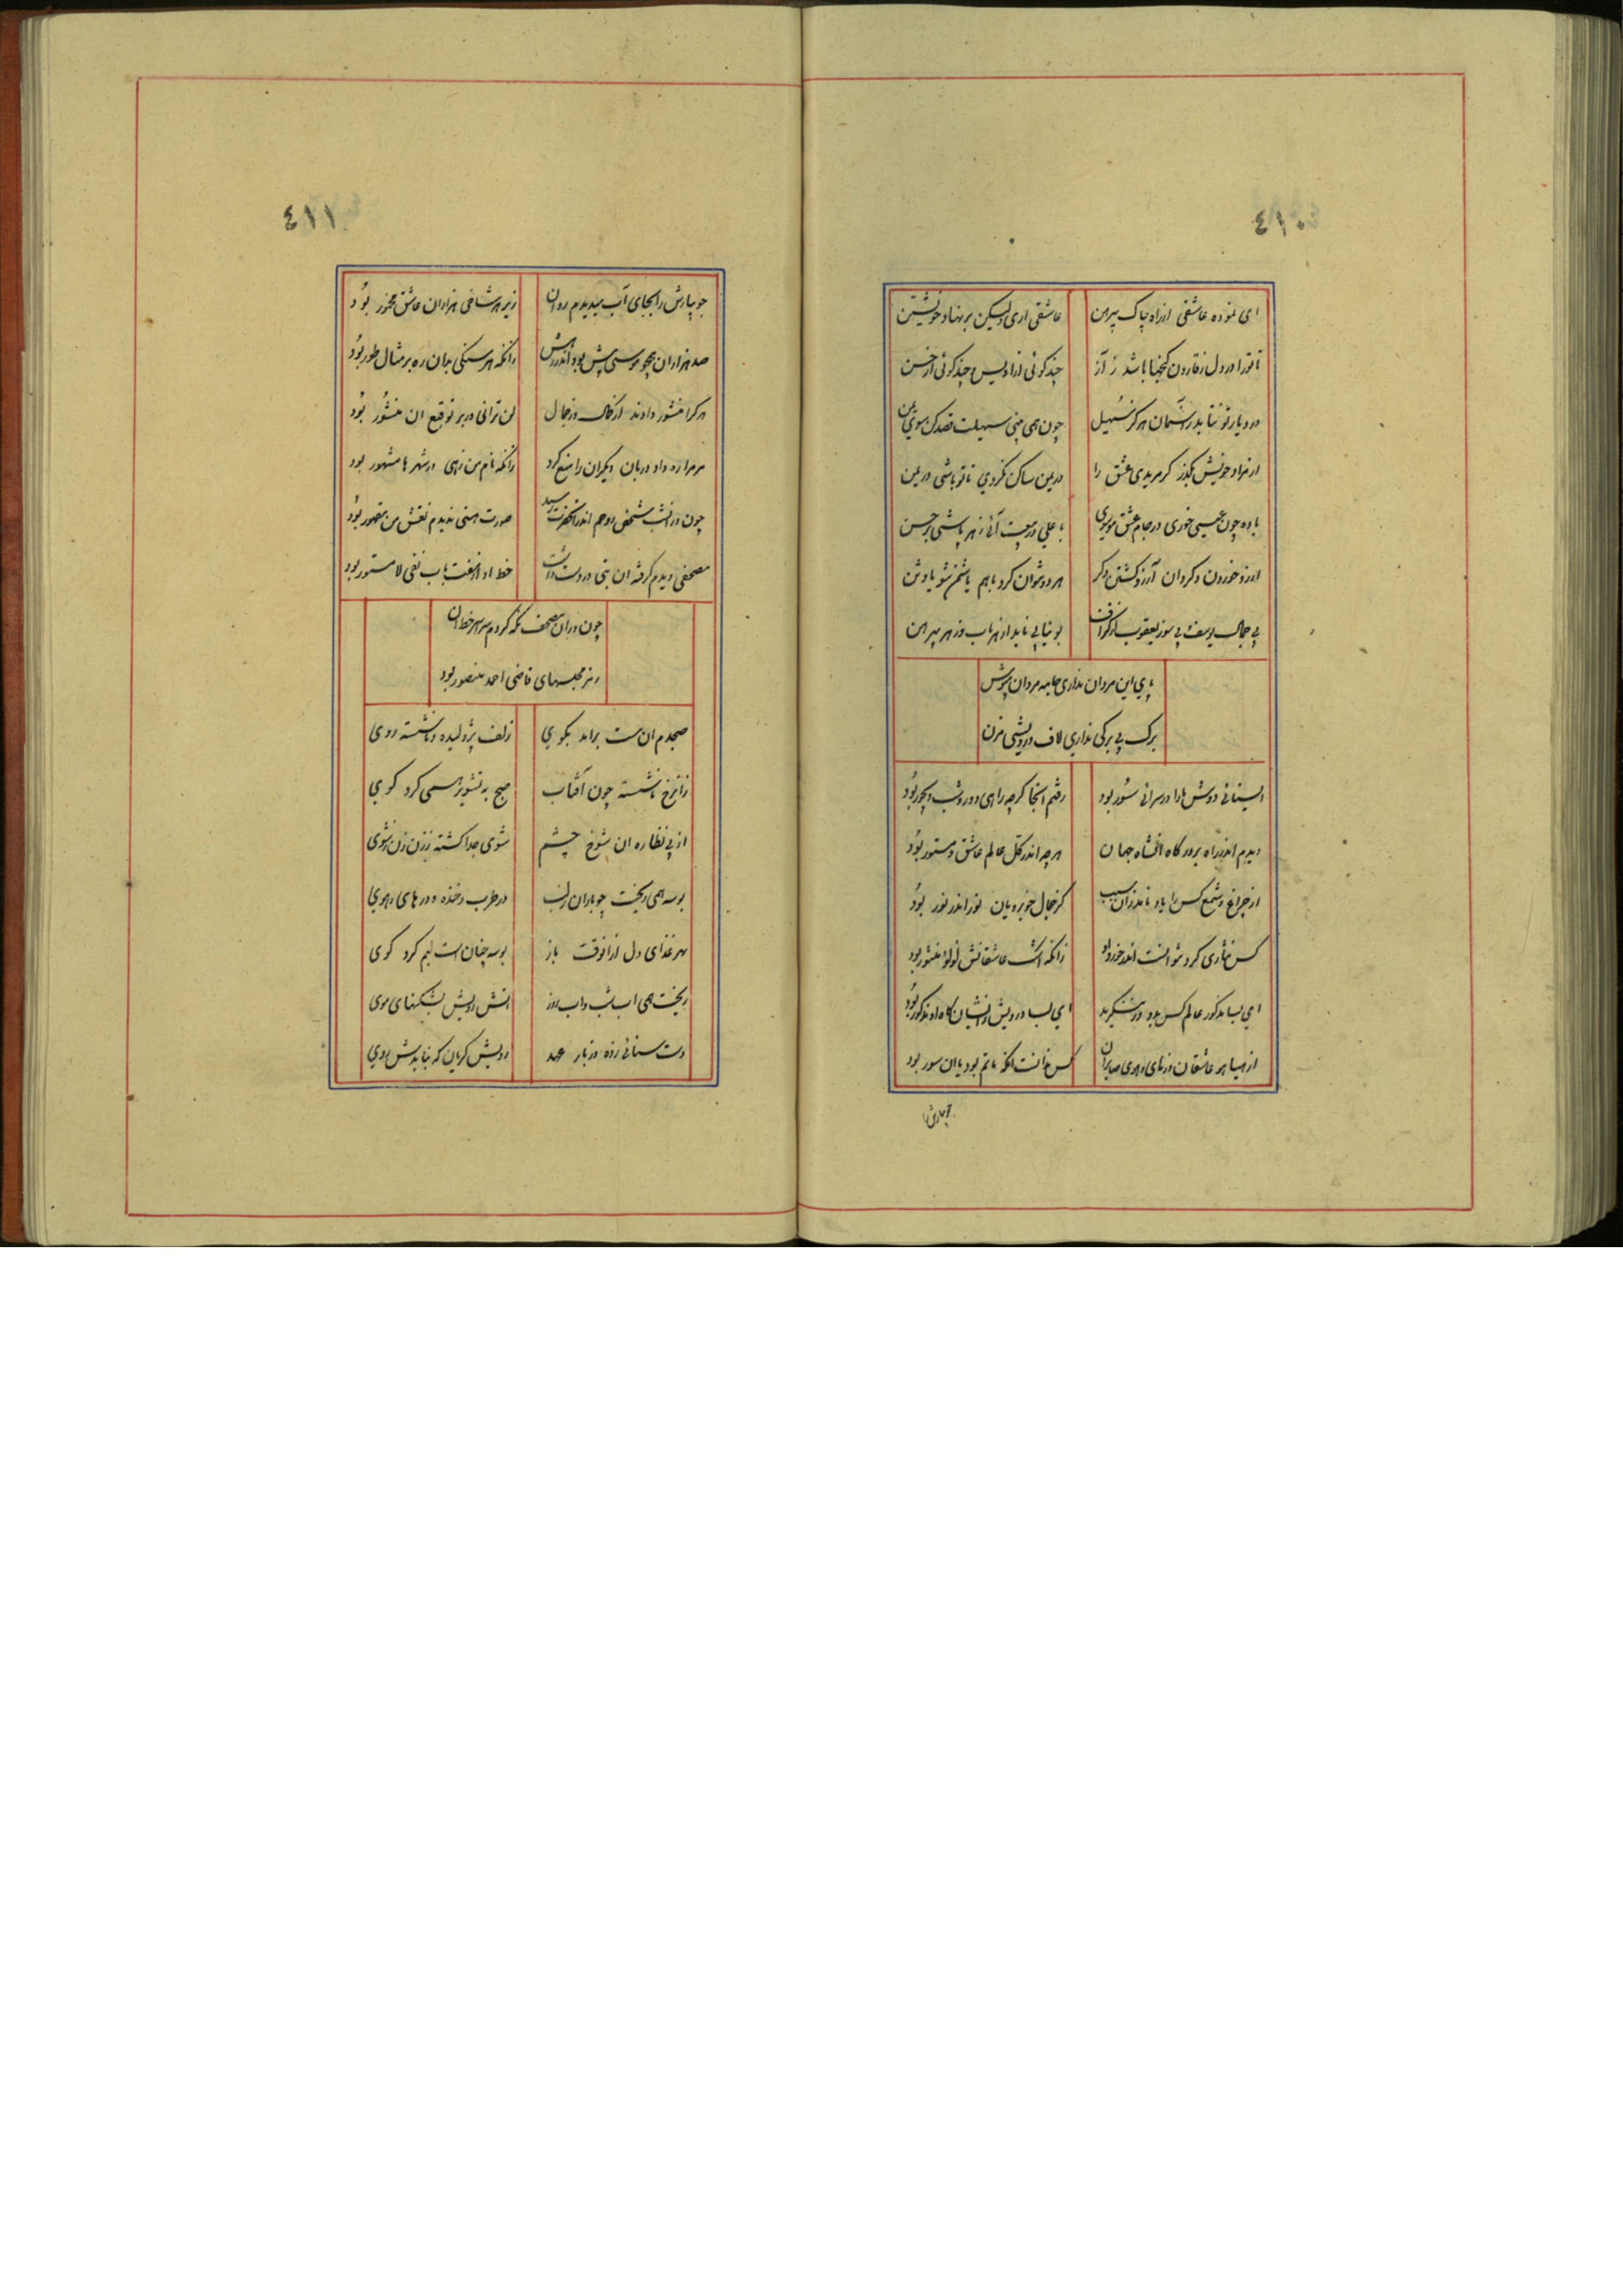 ٤١٠
ای نموده عاشقی از راه چاک پیرهن عاشقی اری ولیکن بر نهاد خویشتن
تا ترا در دل ز قارون گنجها باشد ز آز چند کوئی از اویس و چند کوئی از قرن
در دیار تو نتابد ز آسمان هرگز سهیل چون همی بینی سهیلت قصد کن سوی یمن
از مراد خویش بگذر گر مریدی عشق را در یمن ساکن نگردی تا تو باشی در یمن
باده چون عیسی خوری در جام عشق موسوی با علی در بیعت آئی زهر باشی بر حسن
ارزو خوردن و کردان آرزو کشتن دگر هر دو نتوان کرد باهم یا شمن شو یا وثن
بی جمال یوسف و بی سوز یعقوب از گزاف بوئیایی ناید از هر باب وز هر پیرهن
پای این مردان نداری جامه مردان مپوش
برک بی برکی نداری لاف درویشی مزن
ای سنائی دوش ما را در سرائی سور بود رفتم آنجا گرچه راهی دور و شب دیجور بود
دیدم اندر راه بر درگاه آن شاه جهان هر چه اندر کل عالم عاشق مستور بود
از چراغ و شمع کس را یاد نامد زان سبب کز جمال خوبرویان نور اندر نور بود
کس نثاری کرد نتوانست اندر خورد او زانکه اشک عاشقانش لولو منثور بود
ای بسا مذکور عالم کس بدو در ننگرید ای بسا درویش ز ایشان کاه او مذکور بود
از هیاهو عاشقان وز های و هوی صابران کس ندانست آنکه ماتم بود یا آن سور بود
جویبارش
٤١١
جویبارش را بجای آب میدیدم روان زیر هر شاخی هزاران عاشق مخمور بود
صد هزاران همچو موسی پیش بود اندر رهش زانکه هر سنکی بدان ره بر مثال طور بود
هر کرا منشور دادند از کمال و از جمال لن ترانی در بر توقیع آن منشور بود
مر مرا ره داد دربان دیگران را منع کرد زانکه نام من رهی در شهرها مشهور بود
چون در آنشب شخص روحم اندر آنحضرت رسید صورت هستی ندیدم نقش من مقهور بود
مصحفی دیدم گرفته آن بتی در دست راست خط او از نعت باب نفی لا مستور بود
چون در آن مصحف نگه کردم سراسر خط آن
رمز مجلسهای قاضی احمد منصور بود
صبحدم ان مست برآمد بکوی زلف پژولیده و ناشسته روی
زان رخ ناشسته چون آفتاب صبح به تشویر همی کرد کوی
از پی نظاره ان شوخ چشم شوی جدا گشته ز زن زن ز شوی
بوسه همی ریخت چو باران ز لب در طرب و خنده و در های و هوی
بهر غذای دل از آنوقت باز بوسه چنان است لبم کرد کوی
ریخت همی اب شب و اب روز آتش رویش بشکنهای موی
دست سنائی زده در بار عهد رویش گریان که نباید ش بوی